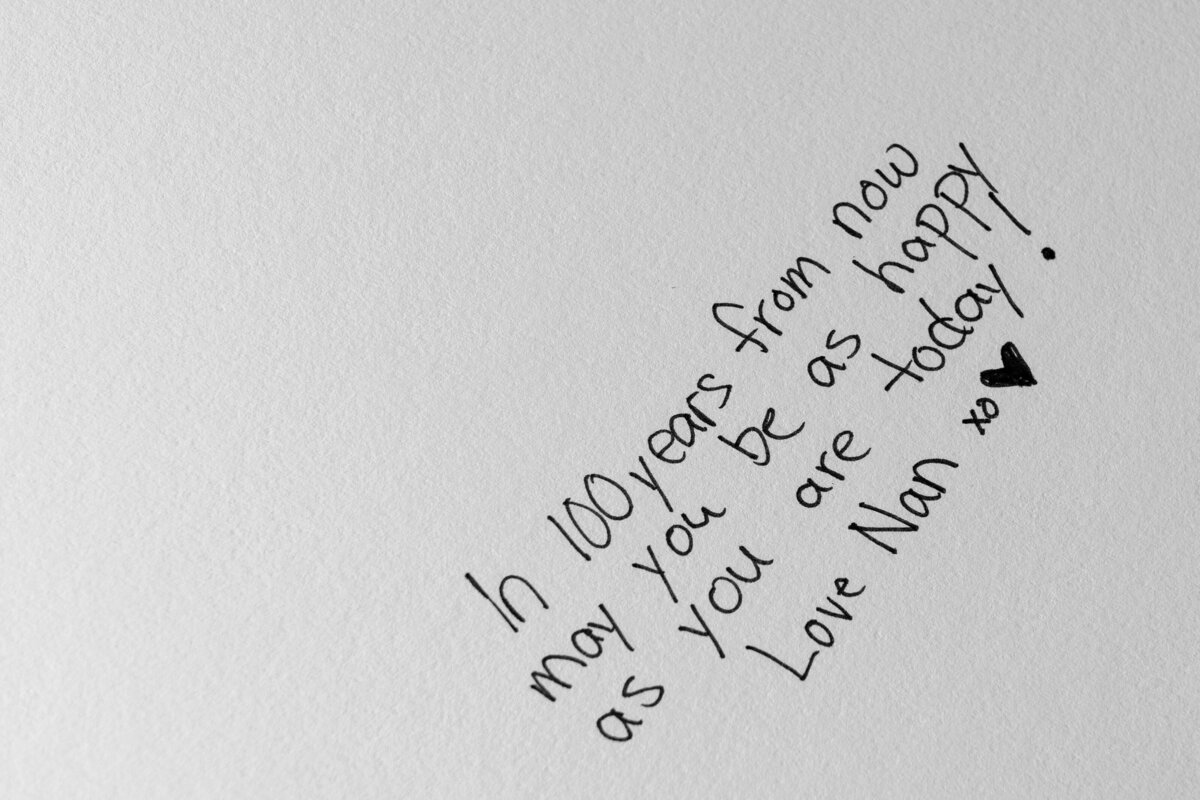 In 100 years from now
may you be as happy
as you are today!
Love Nan xo ♥